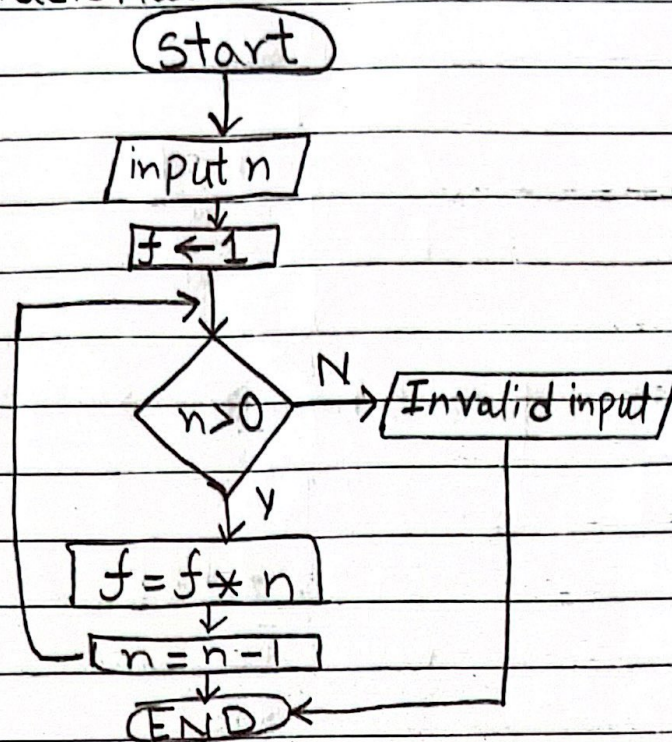 start
input n
f ← 1
n>0
N
Invalid input
y
f = f * n
n = n - 1
END